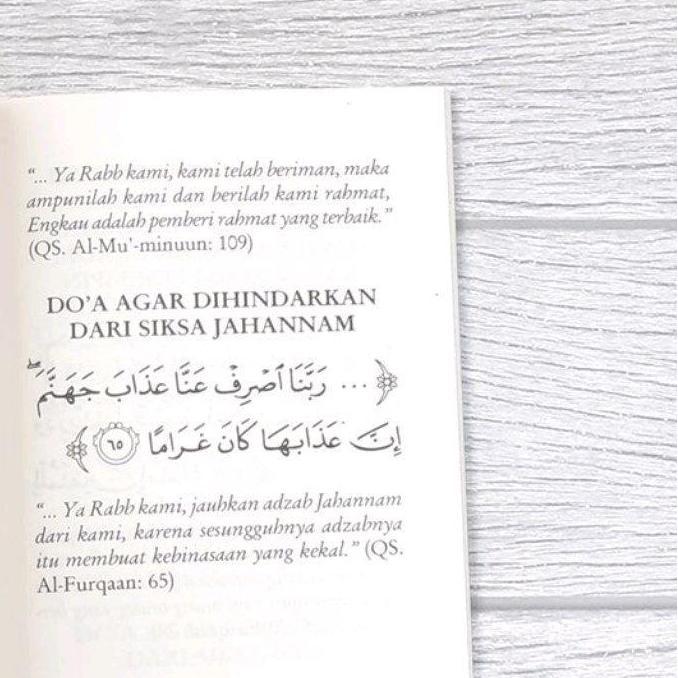 “... Ya Rabb kami, kami telah beriman, maka
ampunilah kami dan berilah kami rahmat,
Engkau adalah pemberi rahmat yang terbaik.”
(QS. Al-Mu'-minuun: 109)
DO'A AGAR DIHINDARKAN
DARI SIKSA JAHANNAM
﴿ ... رَبَّنَا ٱصْرِفْ عَنَّا عَذَابَ جَهَنَّمَ ۖ
إِنَّ عَذَابَهَا كَانَ غَرَامًا ٦٥ ﴾
“... Ya Rabb kami, jauhkan adzab Jahannam
dari kami, karena sesungguhnya adzabnya
itu membuat kebinasaan yang kekal.” (QS.
Al-Furqaan: 65)